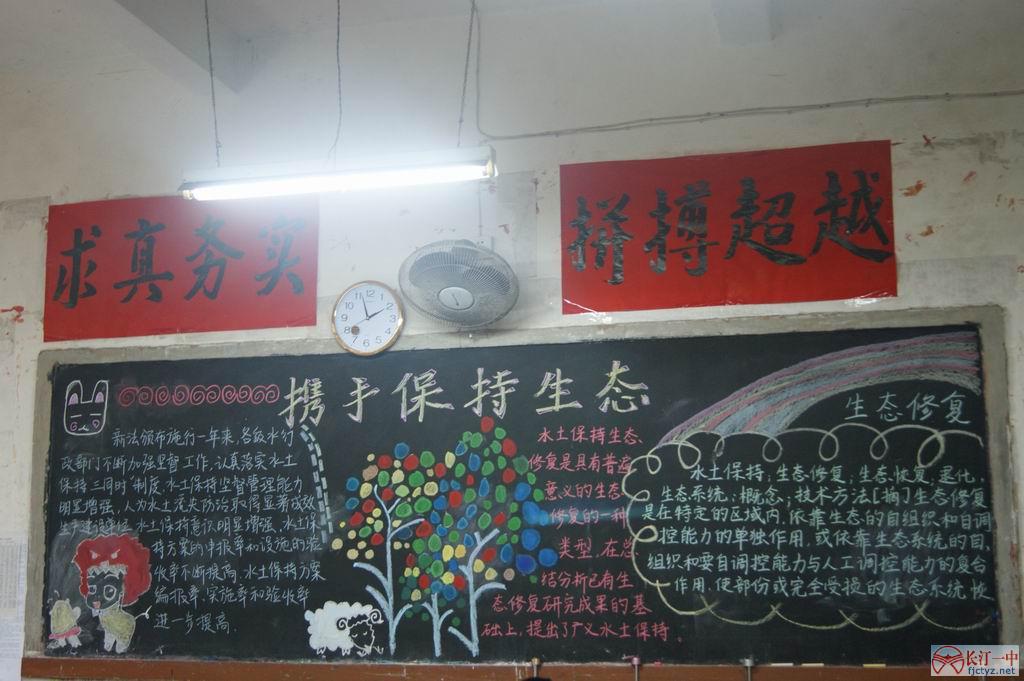 求真务实
拼搏超越
携手保持生态
新法颁布施行一年来,各级水行
政部门不断加强监督工作,认真落实水土
保持"三同时"制度,水土保持监督管理能力
明显增强,人为水土流失防治取得显著成效
生产建设单位 水土保持意识明显增强,水土保
持方案的申报率和设施的验
收率不断提高,水土保持方案
编报率,实施率和验收率
进一步提高.
水土保持生态
修复是具有普遍
意义的生态
修复的一种
类型,在总
结分析已有生
态修复研究成果的基
础上,提出了广义水土保持
生态修复
水土保持;生态修复;生态恢复,退化
生态系统;概念、技术方法[摘]生态修复
是在特定的区域内,依靠生态的自组织和自调
控能力的单独作用,或依靠生态系统的自
组织和要自调控能力与人工调控能力的复合
作用,使部份或完全受损的生态系统恢
长汀一中
fjctyz.net